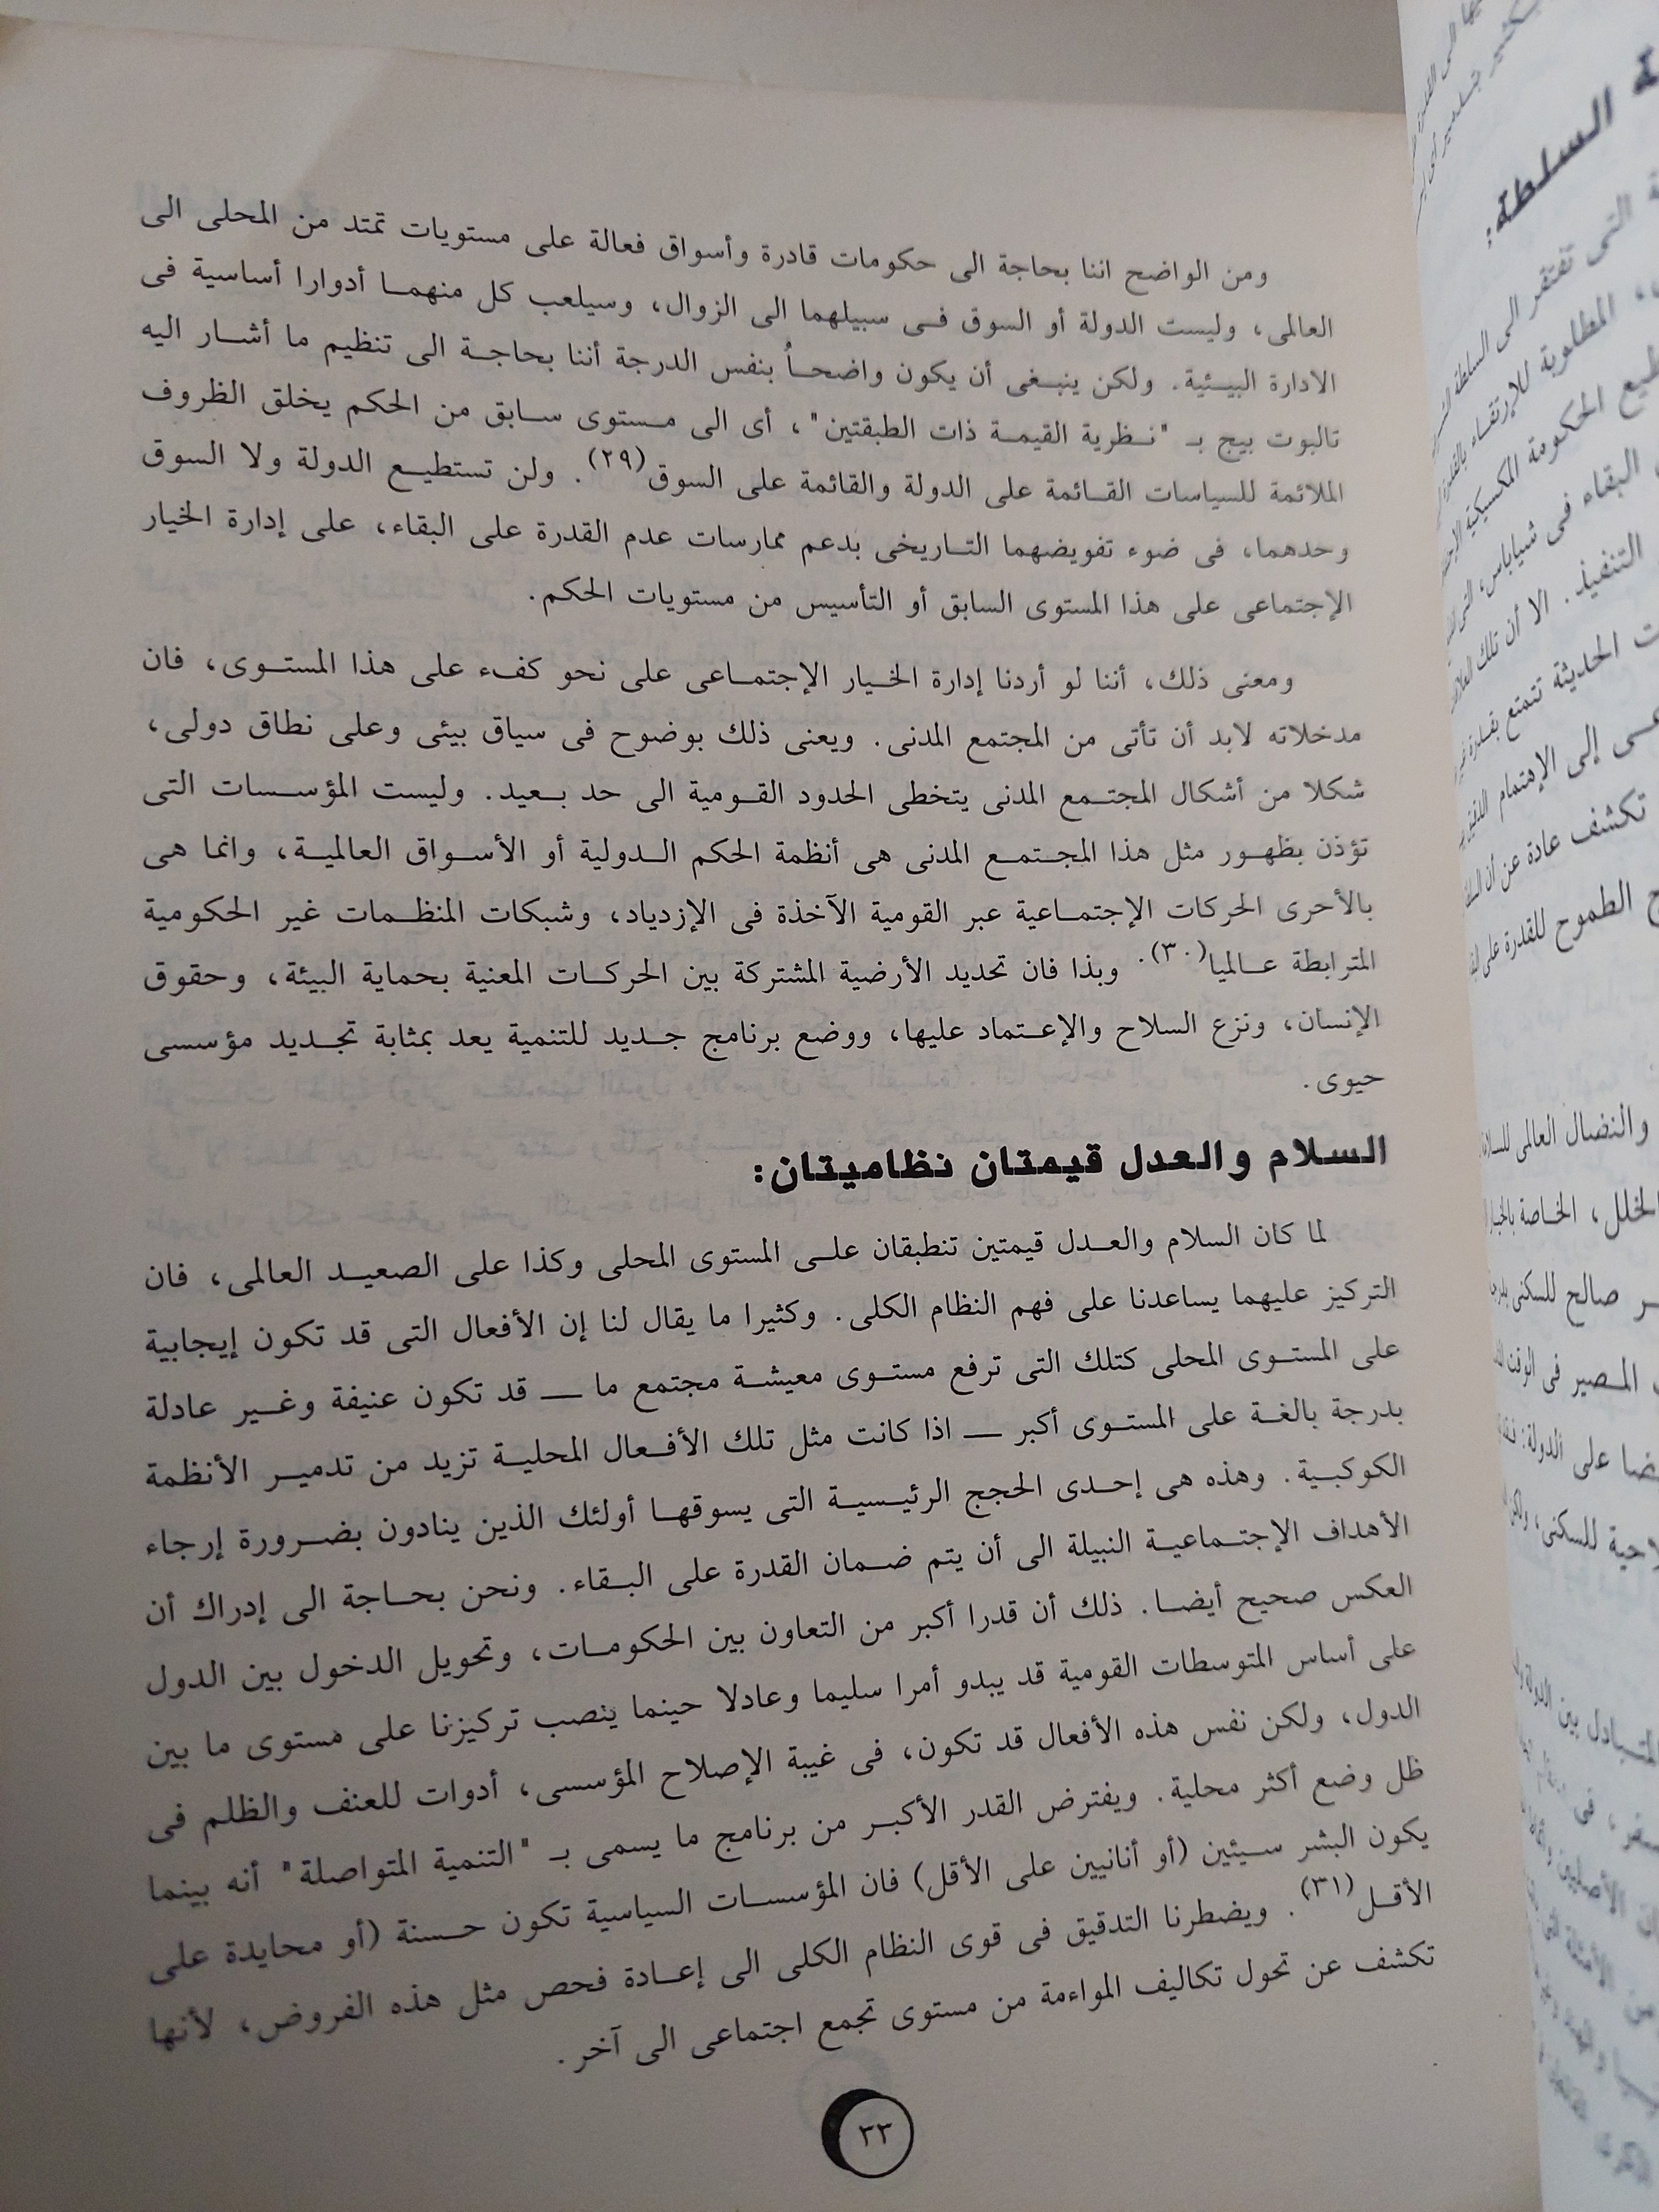 ومن الواضح اننا بحاجة الى حكومات قادرة وأسواق فعالة على مستويات تمتد من المحلى الى
العالمى، وليست الدولة أو السوق فى سبيلهما الى الزوال، وسيلعب كل منهما أدوارا أساسية فى
الادارة البيئية. ولكن ينبغى أن يكون واضحاً بنفس الدرجة أننا بحاجة الى تنظيم ما أشار اليه
تالبوت بيج بـ "نظرية القيمة ذات الطبقتين"، أى الى مستوى سابق من الحكم يخلق الظروف
الملائمة للسياسات القائمة على الدولة والقائمة على السوق(٢٩). ولن تستطيع الدولة ولا السوق
وحدهما، فى ضوء تفويضهما التاريخى بدعم ممارسات عدم القدرة على البقاء، على إدارة الخيار
الإجتماعى على هذا المستوى السابق أو التأسيس من مستويات الحكم.
ومعنى ذلك، أننا لو أردنا إدارة الخيار الإجتماعى على نحو كفء على هذا المستوى، فان
مدخلاته لابد أن تأتى من المجتمع المدنى. ويعنى ذلك بوضوح فى سياق بيئى وعلى نطاق دولى،
شكلا من أشكال المجتمع المدنى يتخطى الحدود القومية الى حد بعيد. وليست المؤسسات التى
تؤذن بظهور مثل هذا المجتمع المدنى هى أنظمة الحكم الدولية أو الأسواق العالمية، وانما هى
بالأحرى الحركات الإجتماعية عبر القومية الآخذة فى الإزدياد، وشبكات المنظمات غير الحكومية
المترابطة عالميا(٣٠). وبذا فان تحديد الأرضية المشتركة بين الحركات المعنية بحماية البيئة، وحقوق
الإنسان، ونزع السلاح والإعتماد عليها، ووضع برنامج جديد للتنمية يعد بمثابة تجديد مؤسسى
حيوى.
السلام والعدل قيمتان نظاميتان:
لما كان السلام والعدل قيمتين تنطبقان على المستوى المحلى وكذا على الصعيد العالمى، فان
التركيز عليهما يساعدنا على فهم النظام الكلى. وكثيرا ما يقال لنا إن الأفعال التى قد تكون إيجابية
على المستوى المحلى كتلك التى ترفع مستوى معيشة مجتمع ما — قد تكون عنيفة وغير عادلة
بدرجة بالغة على المستوى أكبر — اذا كانت مثل تلك الأفعال المحلية تزيد من تدمير الأنظمة
الكوكبية. وهذه هى إحدى الحجج الرئيسية التى يسوقها أولئك الذين ينادون بضرورة إرجاء
الأهداف الإجتماعية النبيلة الى أن يتم ضمان القدرة على البقاء. ونحن بحاجة الى إدراك أن
العكس صحيح أيضا. ذلك أن قدرا أكبر من التعاون بين الحكومات، وتحويل الدخول بين الدول
على أساس المتوسطات القومية قد يبدو أمرا سليما وعادلا حينما ينصب تركيزنا على مستوى ما بين
الدول، ولكن نفس هذه الأفعال قد تكون، فى غيبة الإصلاح المؤسسى، أدوات للعنف والظلم فى
ظل وضع أكثر محلية. ويفترض القدر الأكبر من برنامج ما يسمى بـ "التنمية المتواصلة" أنه بينما
يكون البشر سيئين (أو أنانيين على الأقل) فان المؤسسات السياسية تكون حسنة (أو محايدة على
الأقل(٣١). ويضطرنا التدقيق فى قوى النظام الكلى الى إعادة فحص مثل هذه الفروض، لأنها
تكشف عن تحول تكاليف المواءمة من مستوى تجمع اجتماعى الى آخر.
٣٣
ة السلطة:
التى تفتقر الى السلطة
المطلوبة للإرتقاء
الحكومة المكسيكية
البقاء فى شياباس، التى
التنفيذ. الا أن تلك
الحديثة تتمتع بقدرة
إلى الإهتمام
تكشف عادة عن أن
الطموح للقدرة على
والنضال العالمى للسلام
الخلل، الخاصة
صالح للسكنى
المصير فى الوقت
على الدولة:
للسكنى،
بين الدولة